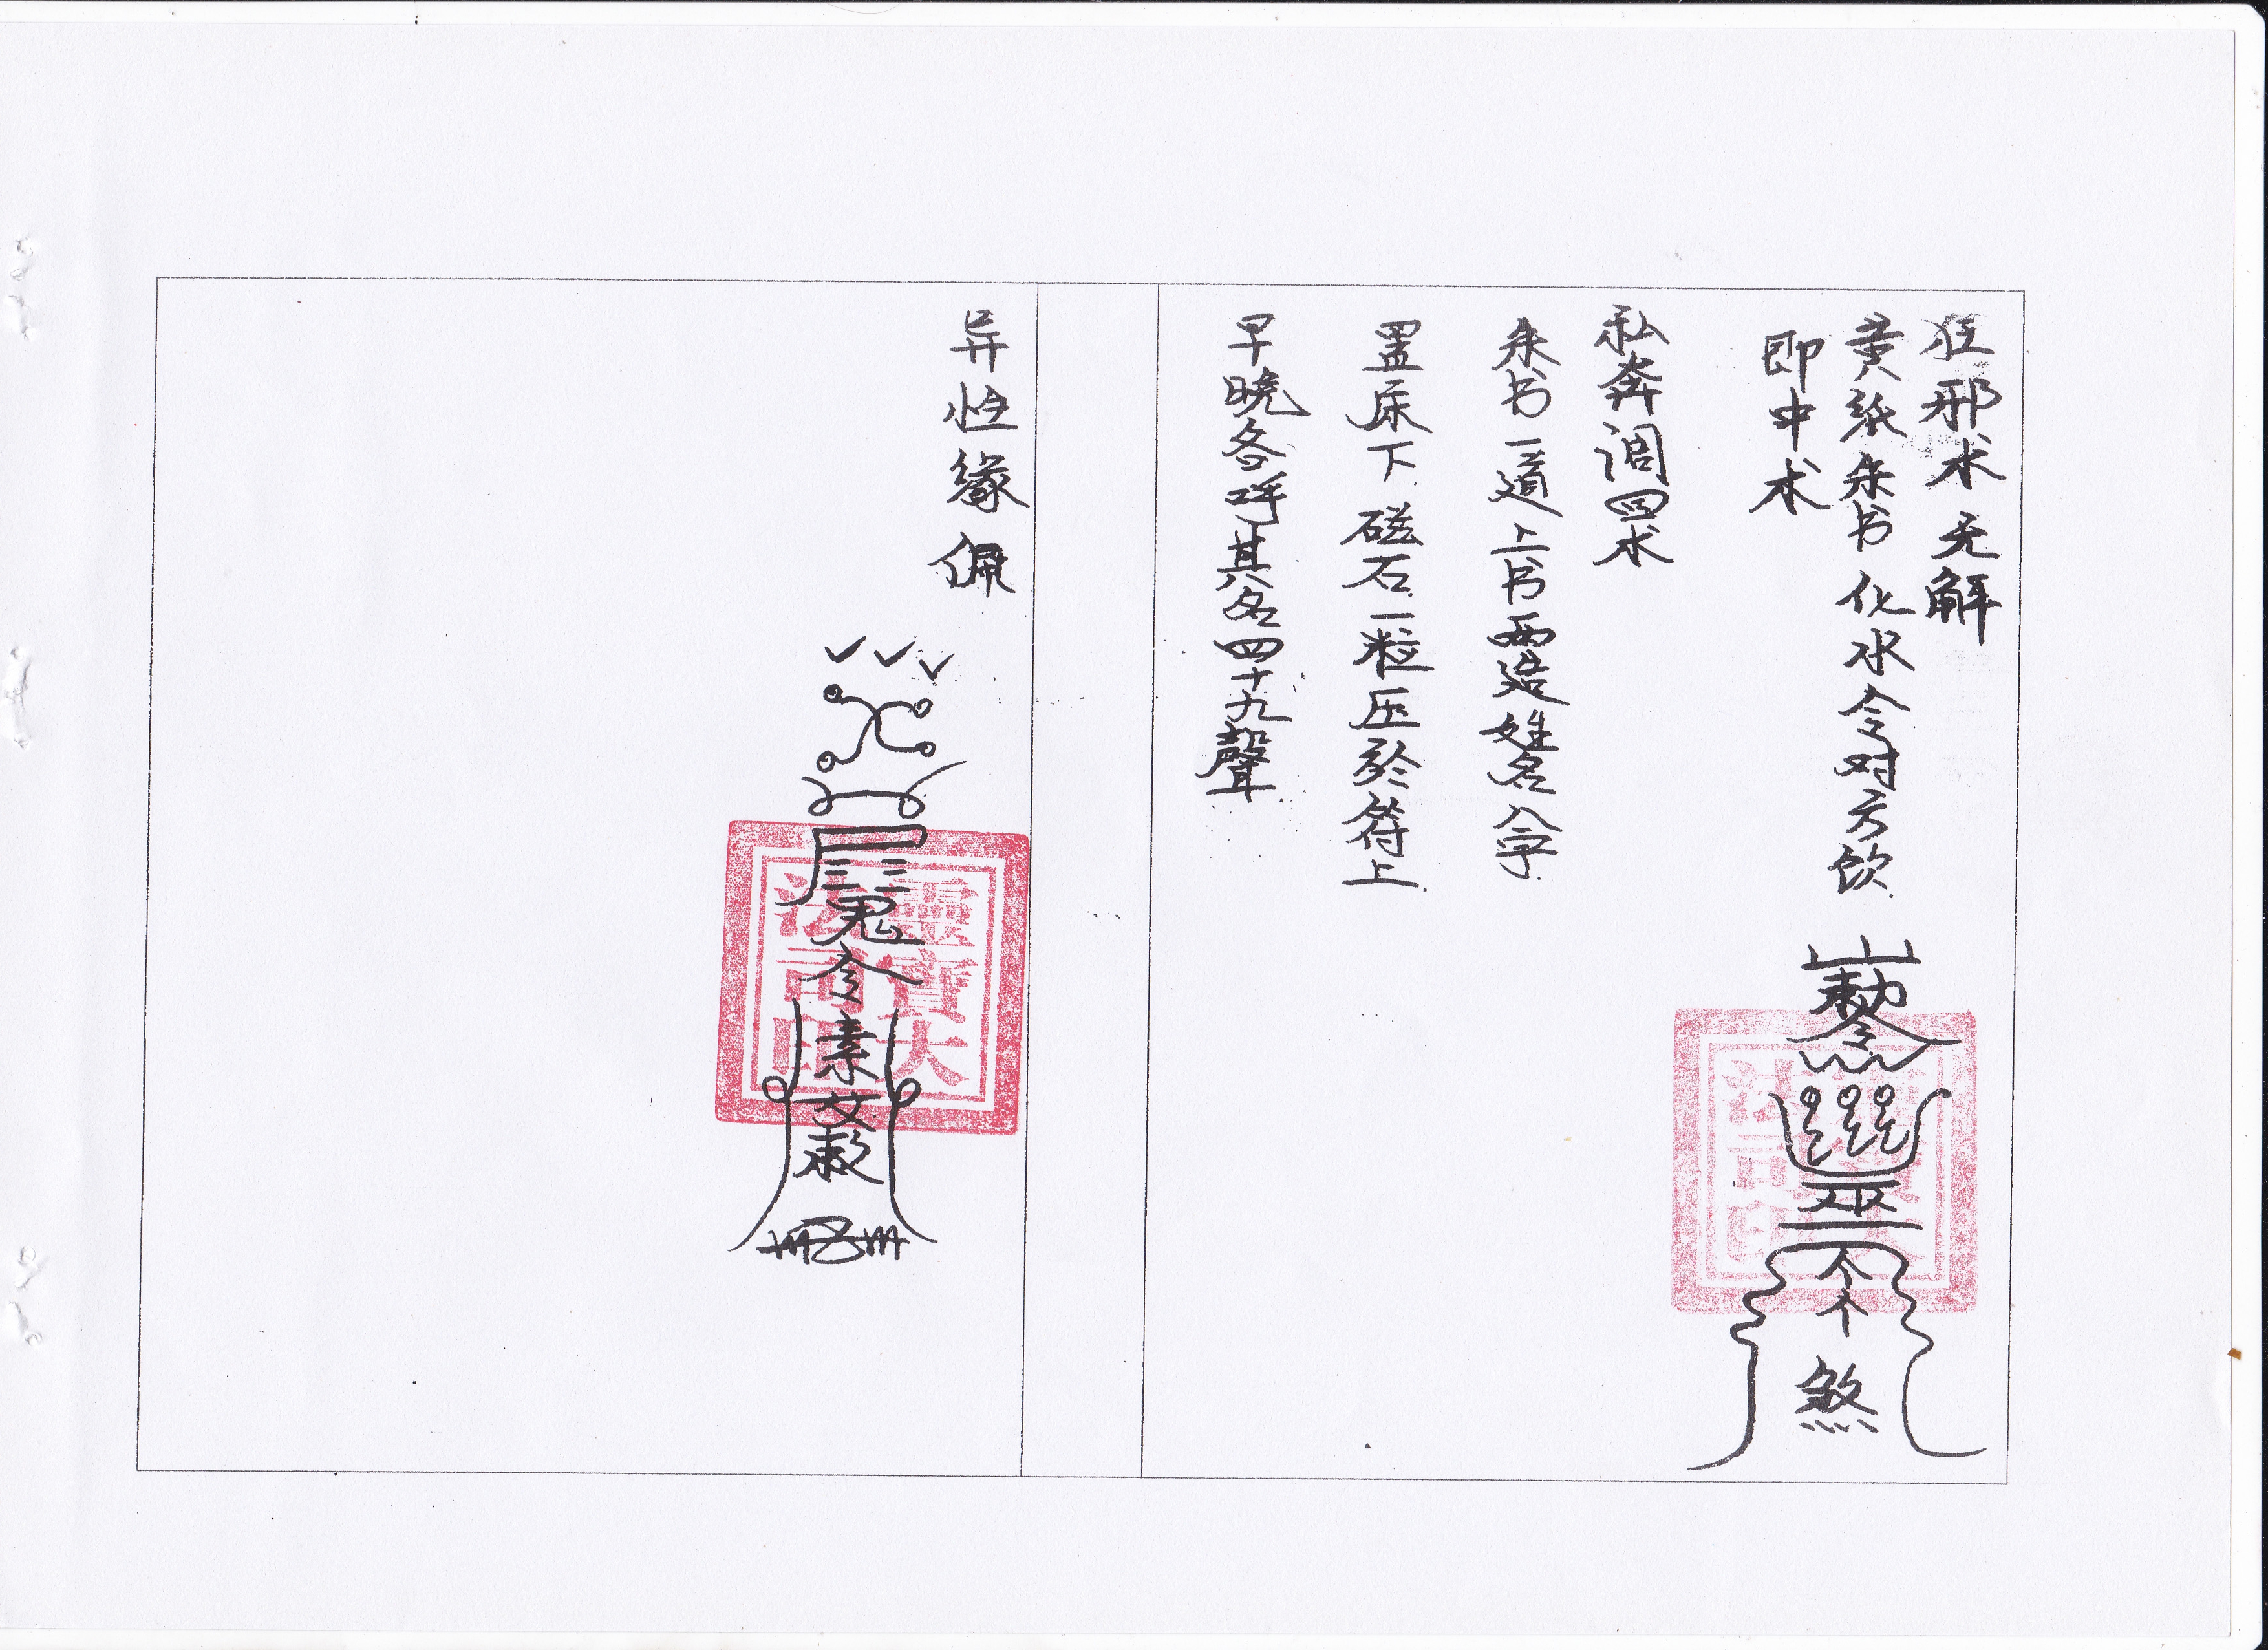 狂邪术 无解
黄纸朱书 化水令对方饮
即中术
敕令
煞
私奔调回术
朱书一道上书两造姓名八字
置床下磁石一粒压於符上
早晚各呼其名四十九聲
异性缘佩
鬼
令
素
女
敕
靈寶大
法司印